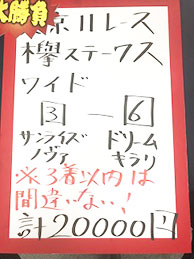 大勝負
京11レース
欅ステークス
ワイド
3 ― 6
サンライズ ドリーム
ノヴァ キラリ
※3着以内は
間違いない!
計20000円